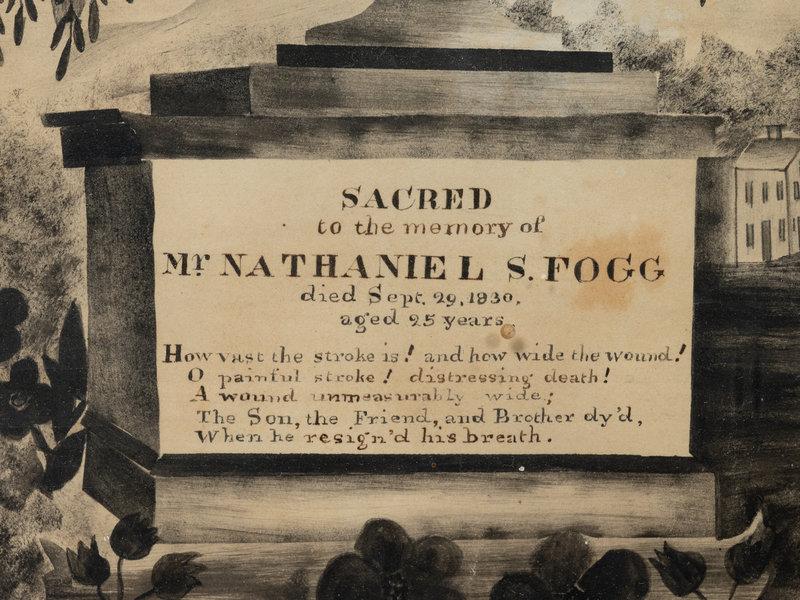 SACRED
to the memory of
Mr NATHANIEL S. FOGG
died Sept. 29, 1830,
aged 25 years
How vast the stroke is! and how wide the wound!
O painful stroke! distressing death!
A wound unmeasurably wide;
The Son, the Friend, and Brother dy'd,
When he resign'd his breath.